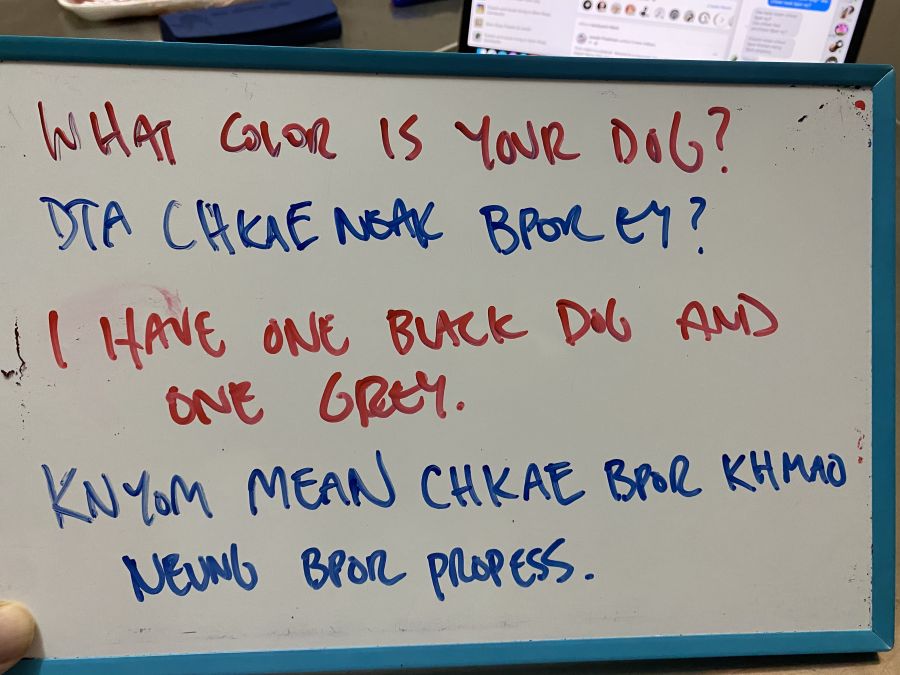 WHAT COLOR IS YOUR DOG?
DTA CHKAE NEAK BPOR EY?
I HAVE ONE BLACK DOG AND
ONE GREY.
KNYOM MEAN CHKAE BPOR KHMAO
NEUNG BPOR PROPESS.